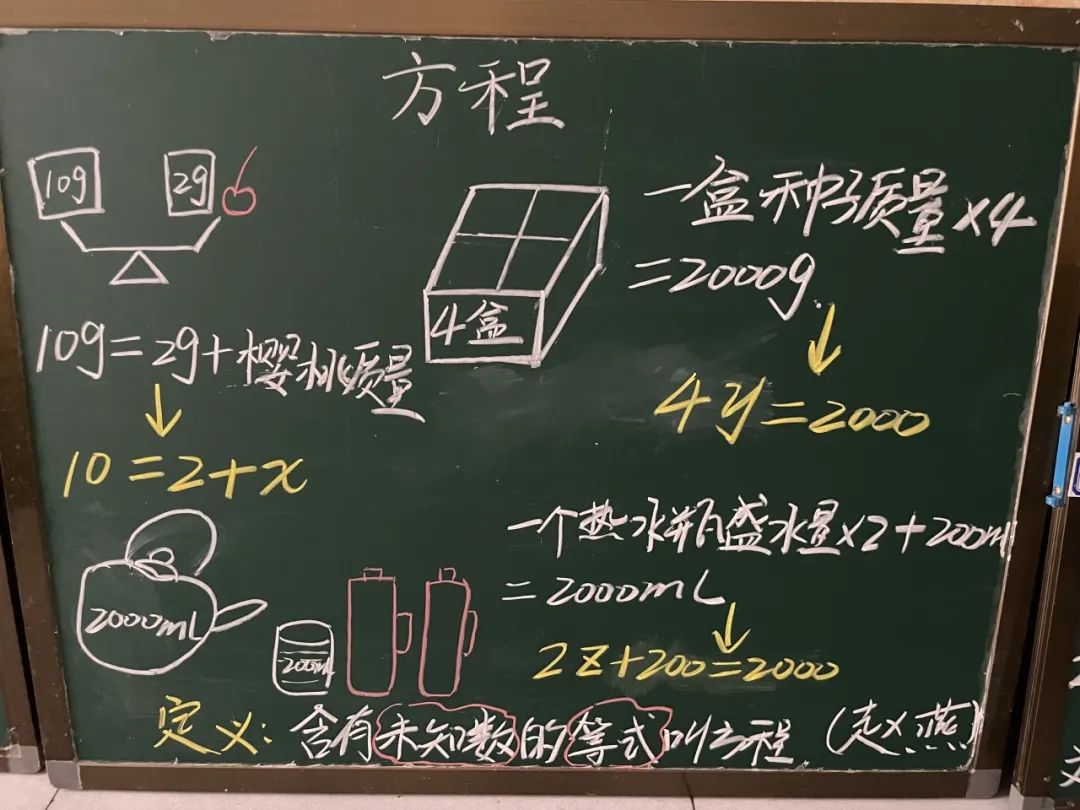 方程
10g 2g
10g=2g+樱桃质量
10=2+x
4盒
一盒种子质量×4
=2000g
4y=2000
2000mL
200mL
一个热水瓶盛水量×2+200ml
=2000mL
2z+200=2000
定义:含有未知数的等式叫方程(赵燕)